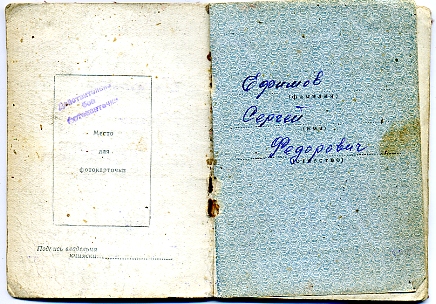 Действительно
без
фотокарточки
Место
для
фотокарточки
Подпись владельца
книжки
Ефимов
(фамилия)
Сергей
(имя)
Федорович
(отчество)